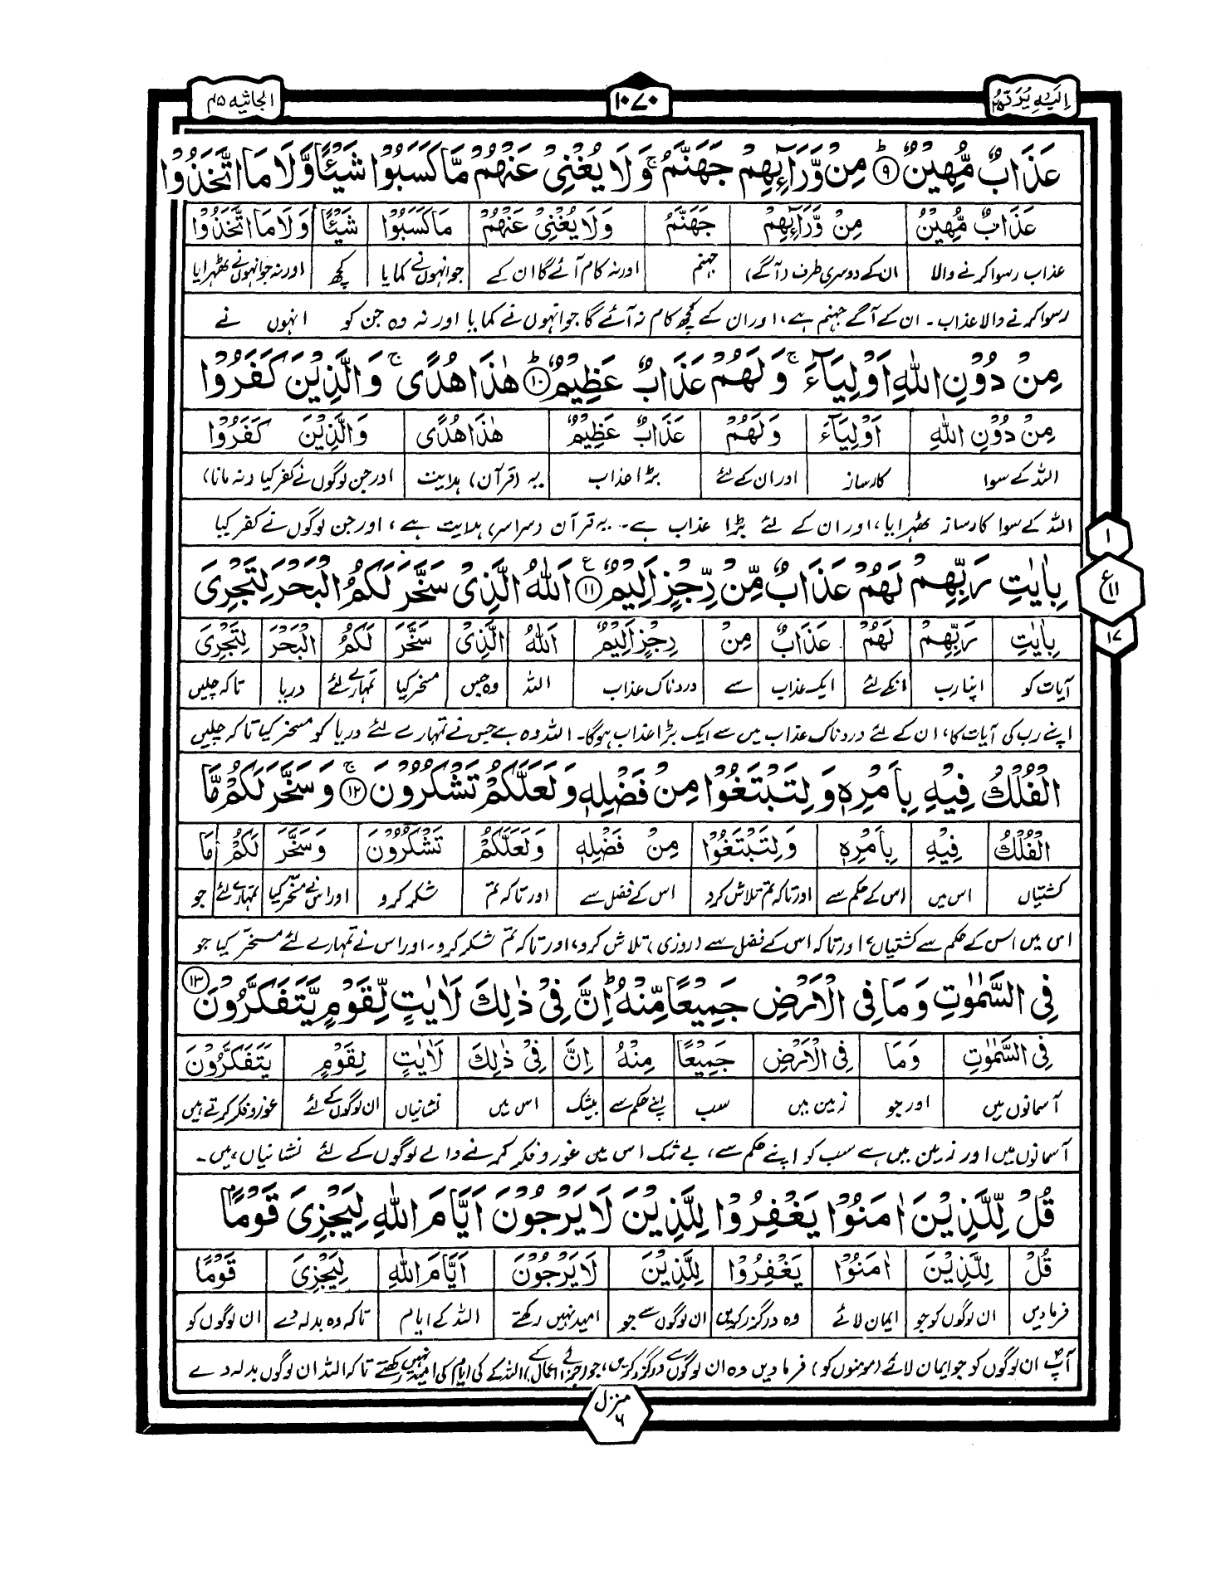 اِلَیْهِ یُرَدُّ ۲۵
۱۰۷۰
الجاثیہ ۴۵
عَذَابٌ مُّهِیْنٌ ۹ مِنْ وَّرَآئِهِمْ جَهَنَّمُ ۚ وَلَا یُغْنِیْ عَنْهُمْ مَّا كَسَبُوْا شَیْـًٔا وَّلَا مَا اتَّخَذُوْا
عَذَابٌ مُّهِیْنٌ مِنْ وَّرَآئِهِمْ جَهَنَّمُ وَلَا یُغْنِیْ عَنْهُمْ مَا كَسَبُوْا شَیْـًٔا وَلَا مَا اتَّخَذُوْا
عذاب رسوا کرنے والا ان کے دوسری طرف (آگے) جہنم اور نہ کام آئے گا ان کے جو انہوں نے کمایا کچھ اور نہ جو انہوں نے ٹھہرایا
رسوا کرنے والا عذاب۔ ان کے آگے جہنم ہے، اور ان کے کچھ کام نہ آئے گا جو انہوں نے کمایا اور نہ وہ جن کو انہوں نے
مِنْ دُوْنِ اللّٰهِ اَوْلِیَآءَ ۚ وَلَهُمْ عَذَابٌ عَظِیْمٌ ۱۰ هٰذَا هُدًی ۚ وَالَّذِیْنَ كَفَرُوْا
مِنْ دُوْنِ اللّٰهِ اَوْلِیَآءَ وَلَهُمْ عَذَابٌ عَظِیْمٌ هٰذَا هُدًی وَالَّذِیْنَ كَفَرُوْا
اللہ کے سوا کارساز اور ان کے لئے بڑا عذاب یہ (قرآن) ہدایت اور جن لوگوں نے کفر کیا (نہ مانا)
اللہ کے سوا کارساز ٹھہرایا، اور ان کے لئے بڑا عذاب ہے۔ یہ قرآن (سراسر) ہدایت ہے، اور جن لوگوں نے کفر کیا
بِاٰیٰتِ رَبِّهِمْ لَهُمْ عَذَابٌ مِّنْ رِّجْزٍ اَلِیْمٌ ۱۱ اَللّٰهُ الَّذِیْ سَخَّرَ لَكُمُ الْبَحْرَ لِتَجْرِیَ
۱
ع ۱۱
۱۷
بِاٰیٰتِ رَبِّهِمْ لَهُمْ عَذَابٌ مِنْ رِجْزٍ اَلِیْمٌ اَللّٰهُ الَّذِیْ سَخَّرَ لَكُمُ الْبَحْرَ لِتَجْرِیَ
آیات کو اپنا رب انکے لئے ایک عذاب سے دردناک عذاب اللہ وہ جس مسخر کیا تمہارے لئے دریا تاکہ چلیں
اپنے رب کی آیات کا، ان کے لئے دردناک عذاب میں سے ایک بڑا عذاب ہوگا۔ اللہ وہ ہے جس نے تمہارے لئے دریا کو مسخر کیا تاکہ چلیں
الْفُلْكُ فِیْهِ بِاَمْرِهٖ وَلِتَبْتَغُوْا مِنْ فَضْلِهٖ وَلَعَلَّكُمْ تَشْكُرُوْنَ ۱۲ وَسَخَّرَ لَكُمْ مَّا
الْفُلْكُ فِیْهِ بِاَمْرِهٖ وَلِتَبْتَغُوْا مِنْ فَضْلِهٖ وَلَعَلَّكُمْ تَشْكُرُوْنَ وَسَخَّرَ لَكُمْ مَّا
کشتیاں اس میں اس کے حکم سے اور تاکہ تم تلاش کرو اس کے فضل سے اور تاکہ تم شکر کرو اور اس نے مسخر کیا تمہارے لئے جو
اس میں اس کے حکم سے کشتیاں، اور تاکہ اس کے فضل سے (روزی) تلاش کرو، اور تاکہ تم شکر کرو۔ اور اس نے تمہارے لئے مسخر کیا جو
فِی السَّمٰوٰتِ وَمَا فِی الْاَرْضِ جَمِیْعًا مِّنْهُ ؕ اِنَّ فِیْ ذٰلِكَ لَاٰیٰتٍ لِّقَوْمٍ یَّتَفَكَّرُوْنَ ۱۳
فِی السَّمٰوٰتِ وَمَا فِی الْاَرْضِ جَمِیْعًا مِنْهُ اِنَّ فِیْ ذٰلِكَ لَاٰیٰتٍ لِقَوْمٍ یَتَفَكَّرُوْنَ
آسمانوں میں اور جو زمین میں سب اپنے حکم سے بیشک اس میں نشانیاں ان لوگوں کے لئے غور و فکر کرتے ہیں
آسمانوں میں اور زمین میں ہے سب کو اپنے حکم سے، بے شک اس میں غور و فکر کرنے والے لوگوں کے لئے نشانیاں ہیں۔
قُلْ لِّلَّذِیْنَ اٰمَنُوْا یَغْفِرُوْا لِلَّذِیْنَ لَا یَرْجُوْنَ اَیَّامَ اللّٰهِ لِیَجْزِیَ قَوْمًا
قُلْ لِلَّذِیْنَ اٰمَنُوْا یَغْفِرُوْا لِلَّذِیْنَ لَا یَرْجُوْنَ اَیَّامَ اللّٰهِ لِیَجْزِیَ قَوْمًا
فرمادیں ان لوگوں کو جو ایمان لائے وہ درگزر کریں ان لوگوں سے جو امید نہیں رکھتے اللہ کے ایام تاکہ وہ بدلہ دے ان لوگوں کو
آپؐ ان لوگوں کو جو ایمان لائے (مومنوں کو) فرمادیں وہ ان لوگوں سے درگزر کریں، جو (جزائے اعمال کے) اللہ کے ایام کی امید نہیں رکھتے تاکہ اللہ ان لوگوں بدلہ دے
منزل ۶